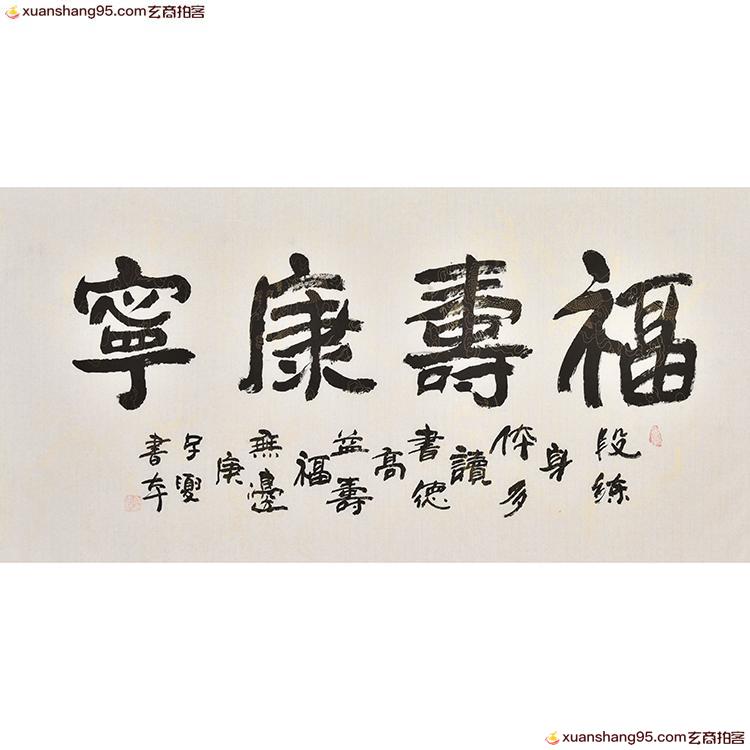 xuanshang95.com玄商拍客
xuanshang95.com玄商拍客
福壽康寧
段練
身
体多
讀
書德
高
益壽
福
無邊
庚
子夏
書
xuanshang95.com玄商拍客